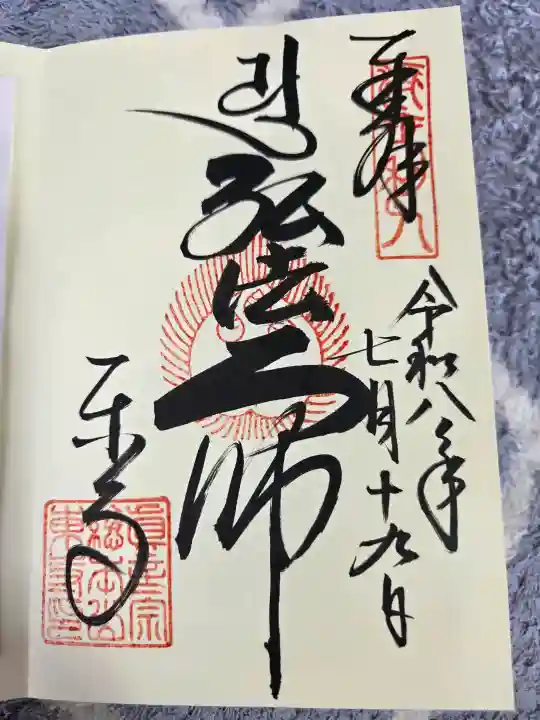 奉拝
令和八年
七月十九日
弘法大師
東寺
真言宗
総本山